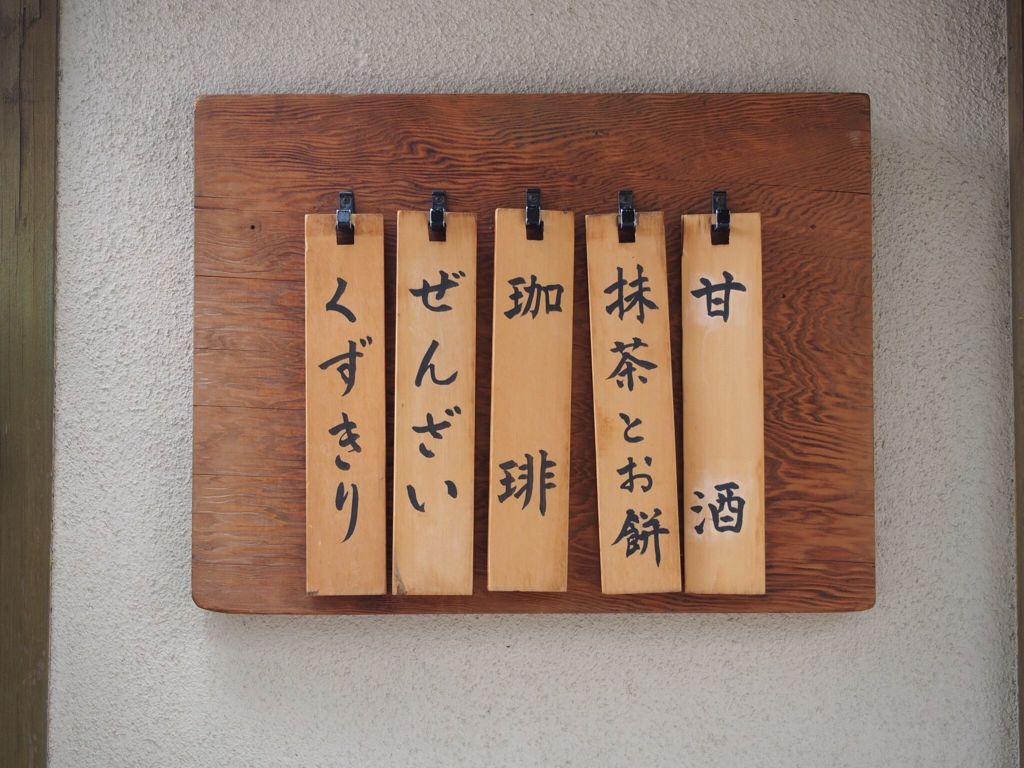 甘酒
抹茶とお餅
珈琲
ぜんざい
くずきり